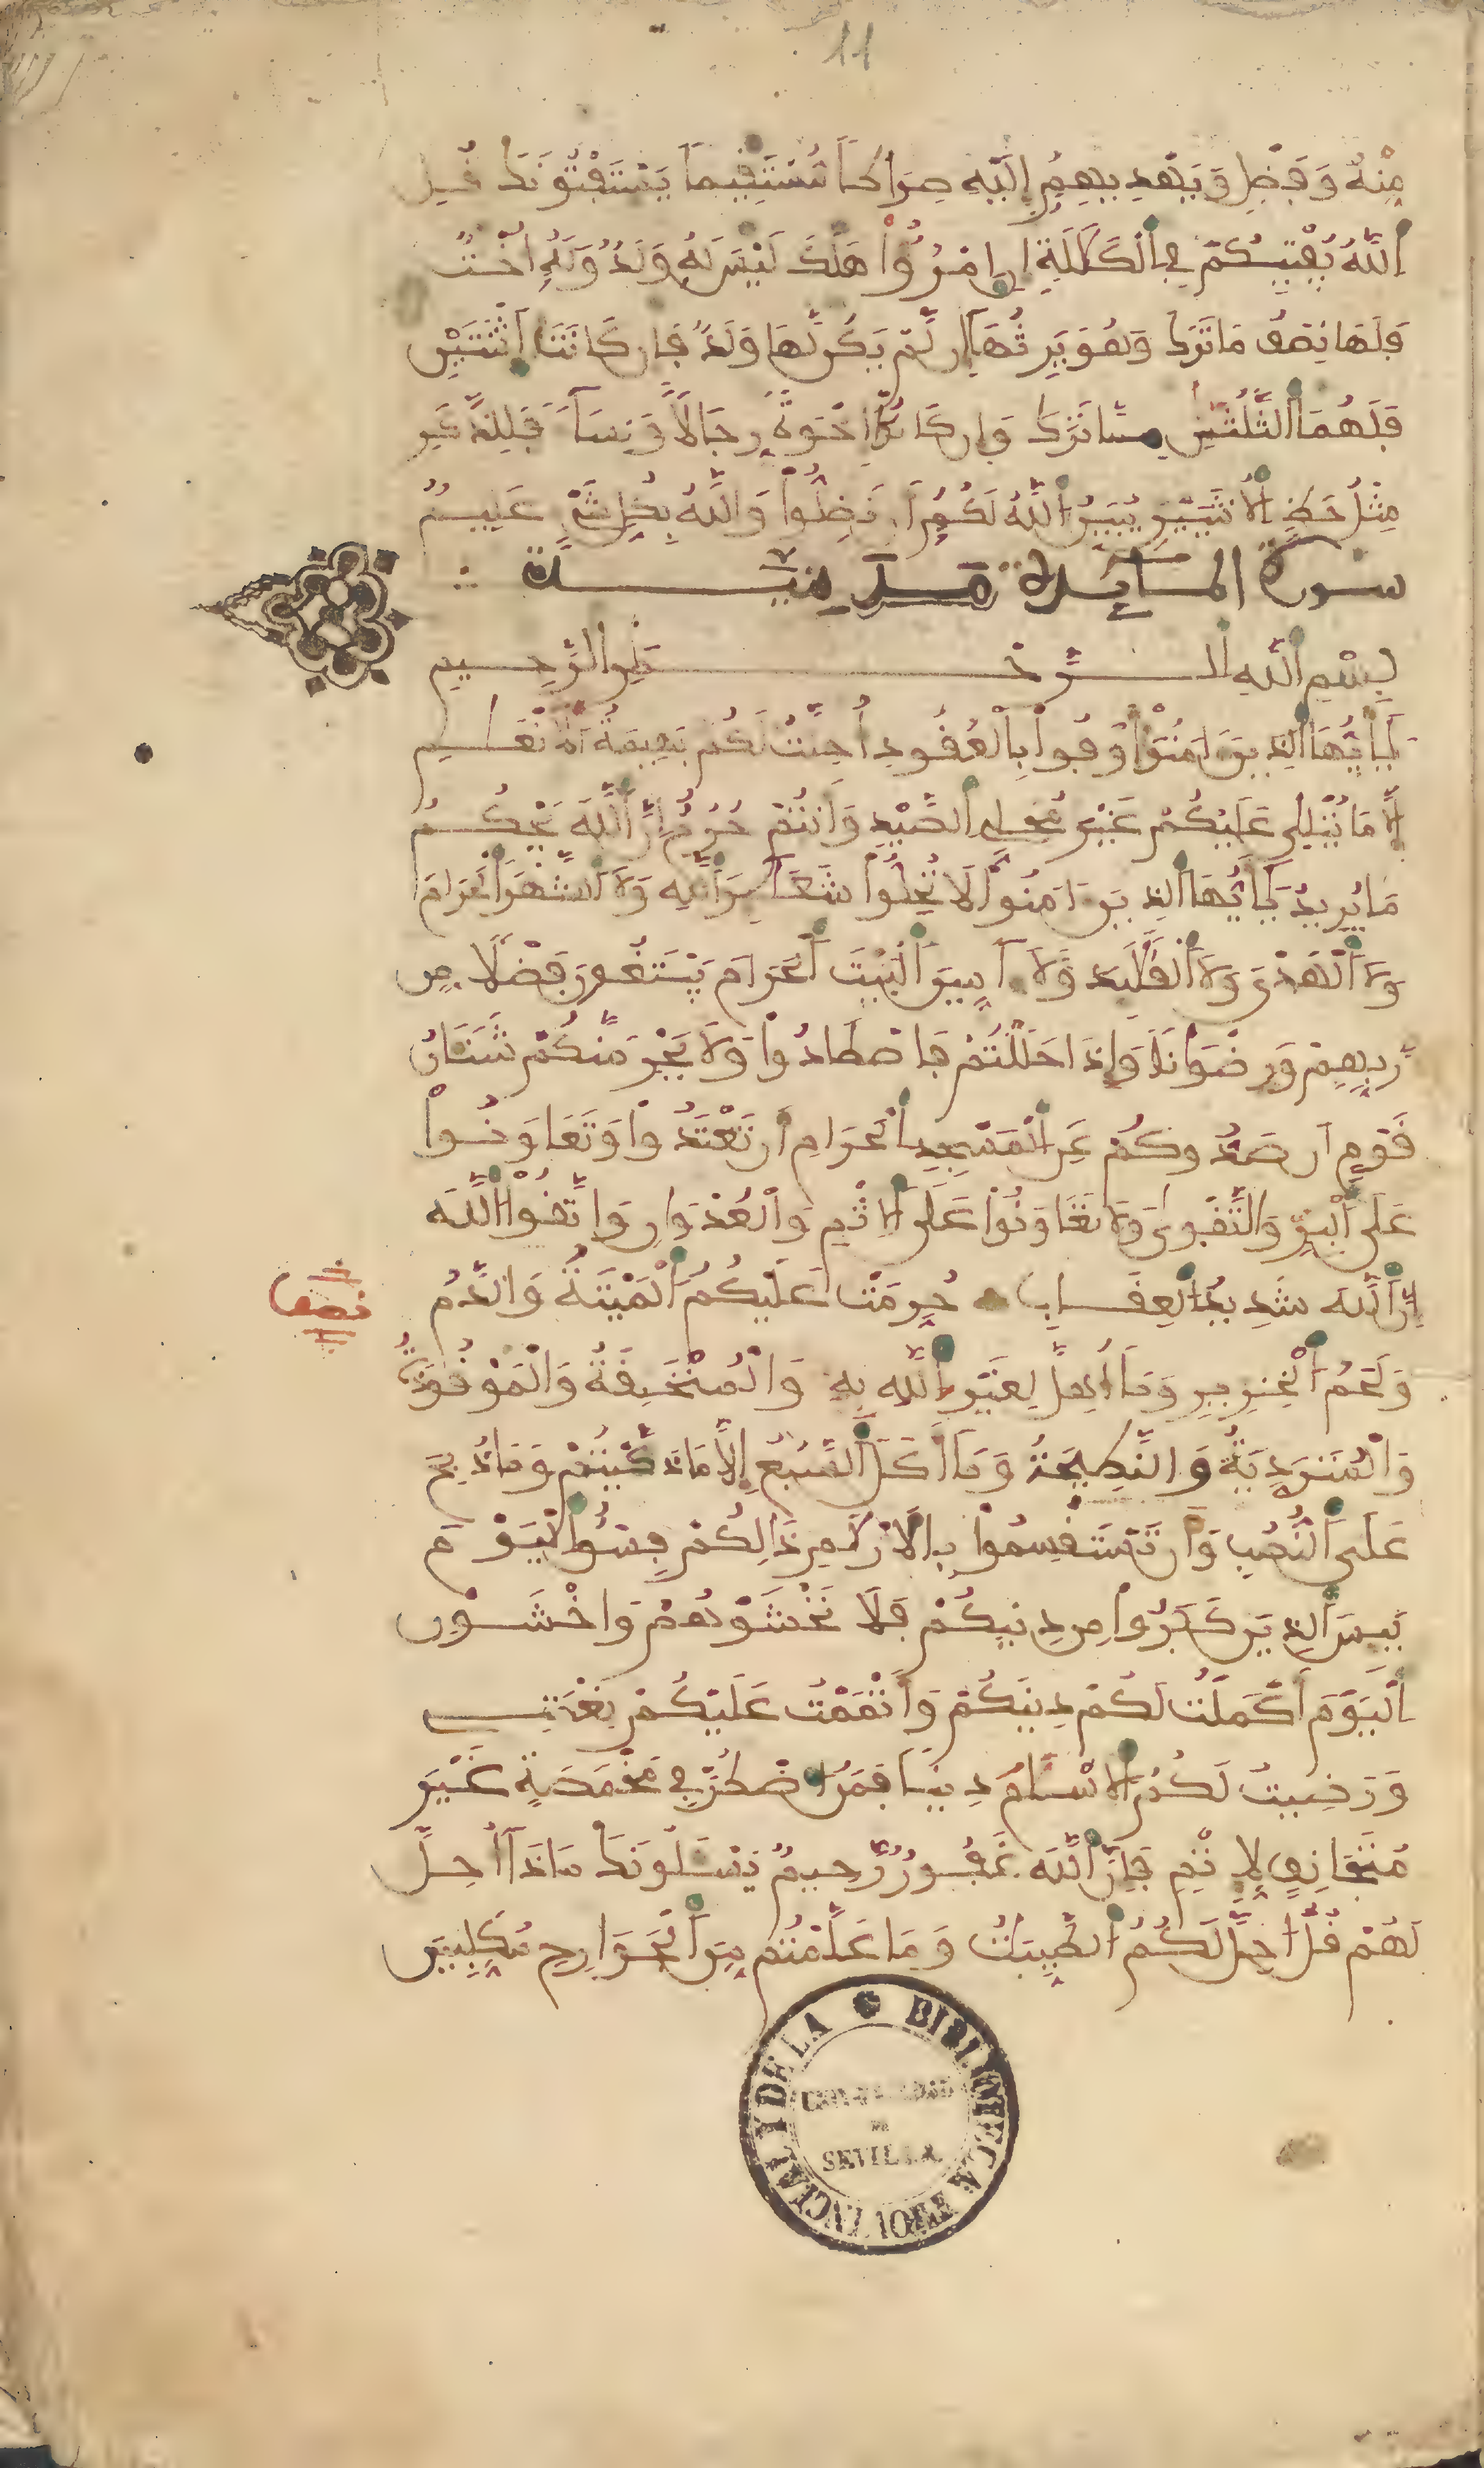 11
مِنْهُ وَفَضْلٍ وَيَهْدِيهِمُ إِلَيْهِ صِرَاطاً مُّسْتَقِيماً يَسْتَفْتُونَكَ قُلِ
اِللَّهُ يُفْتِيكُمْ فِي اِلْكَلَلَةِ إِنِ اِمْرُؤٌاْ هَلَكَ لَيْسَ لَهُ وَلَدٌ وَلَهُ أُخْتٌ
فَلَهَا نِصْفُ مَا تَرَكَ وَهُوَ يَرِثُهَا إِن لَّمْ يَكُن لَّهَا وَلَدٌ فَإِن كَانَتَا اَثْنَتَيْنِ
فَلَهُمَا اَلثُّلُثَنِ مِمَّا تَرَكَ وَإِن كَانُواْ إِخْوَةً رِّجَالاً وَنِسَآءً فَلِلذَّكَرِ
مِثْلُ حَظِّ اِلْأُنثَيَيْنِ يُبَيِّنُ اُللَّهُ لَكُمُ أَن تَضِلُّواْ وَاللَّهُ بِكُلِّ شَيْءٍ عَلِيمٌ
سورة المائدة مدنية
بِسْمِ اِللَّهِ اِلرَّحْمَنِ الرَّحِيمِ
يَأَيُّهَا اَلذِينَ ءَامَنُواْ أَوْفُواْ بِالْعُقُودِ أُحِلَّتْ لَكُم بَهِيمَةُ اُلْأَنْعَمِ
إِلَّا مَا يُتْلَى عَلَيْكُمْ غَيْرَ مُحِلِّي اِلصَّيْدِ وَأَنتُمْ حُرُمٌ إِنَّ اَللَّهَ يَحْكُمُ
مَا يُرِيدُ يَأَيُّهَا اَلذِينَ ءَامَنُواْ لَا تُحِلُّواْ شَعَئِرَ اَللَّهِ وَلَا اَلشَّهْرَ اَلْحَرَامَ
وَلَا اَلْهَدْيَ وَلَا اَلْقَلَئِدَ وَلَا ءَامِّينَ اَلْبَيْتَ اَلْحَرَامَ يَبْتَغُونَ فَضْلاً مِّن
رَّبِّهِمْ وَرِضْوَاناً وَإِذَا حَلَلْتُمْ فَاصْطَادُواْ وَلَا يَجْرِمَنَّكُمْ شَنَئَانُ
قَوْمٍ أَن صَدُّوكُمْ عَنِ اِلْمَسْجِدِ اِلْحَرَامِ أَن تَعْتَدُواْ وَتَعَاوَنُواْ
عَلَى اَلْبِرِّ وَالتَّقْوَى وَلَا تَعَاوَنُواْ عَلَى اَلْإِثْمِ وَالْعُدْوَانِ وَاتَّقُواْ اُللَّهَ
إِنَّ اَللَّهَ شَدِيدُ اُلْعِقَابِ حُرِّمَتْ عَلَيْكُمُ اُلْمَيْتَةُ وَالدَّمُ
نصف
وَلَحْمُ اُلْخِنزِيرِ وَمَا أُهِلَّ لِغَيْرِ اِللَّهِ بِهِ وَالْمُنْخَنِقَةُ وَالْمَوْقُوذَةُ
وَالْمُتَرَدِّيَةُ وَالنَّطِيحَةُ وَمَا أَكَلَ اَلسَّبُعُ إِلَّا مَا ذَكَّيْتُمْ وَمَا ذُبِحَ
عَلَى اَلنُّصُبِ وَأَن تَسْتَقْسِمُواْ بِالْأَزْلَمِ ذَالِكُمْ فِسْقٌ اِلْيَوْمَ
يَئِسَ اَلذِينَ كَفَرُواْ مِن دِينِكُمْ فَلَا تَخْشَوْهُمْ وَاخْشَوْنِ
اِلْيَوْمَ أَكْمَلْتُ لَكُمْ دِينَكُمْ وَأَتْمَمْتُ عَلَيْكُمْ نِعْمَتِي
وَرَضِيتُ لَكُمُ اُلْإِسْلَمَ دِيناً فَمَنُ اُضْطُرَّ فِي مَخْمَصَةٍ غَيْرَ
مُتَجَانِفٍ لِإِثْمٍ فَإِنَّ اَللَّهَ غَفُورٌ رَّحِيمٌ يَسْئَلُونَكَ مَاذَا أُحِلَّ
لَهُمْ قُلُ احِلَّ لَكُمُ اُلطَّيِّبَتُ وَمَا عَلَّمْتُم مِّنَ اَلْجَوَارِحِ مُكَلِّبِينَ
BIBLIOTECA PROVINCIAL Y DE LA
UNIVERSIDAD
DE
SEVILLA